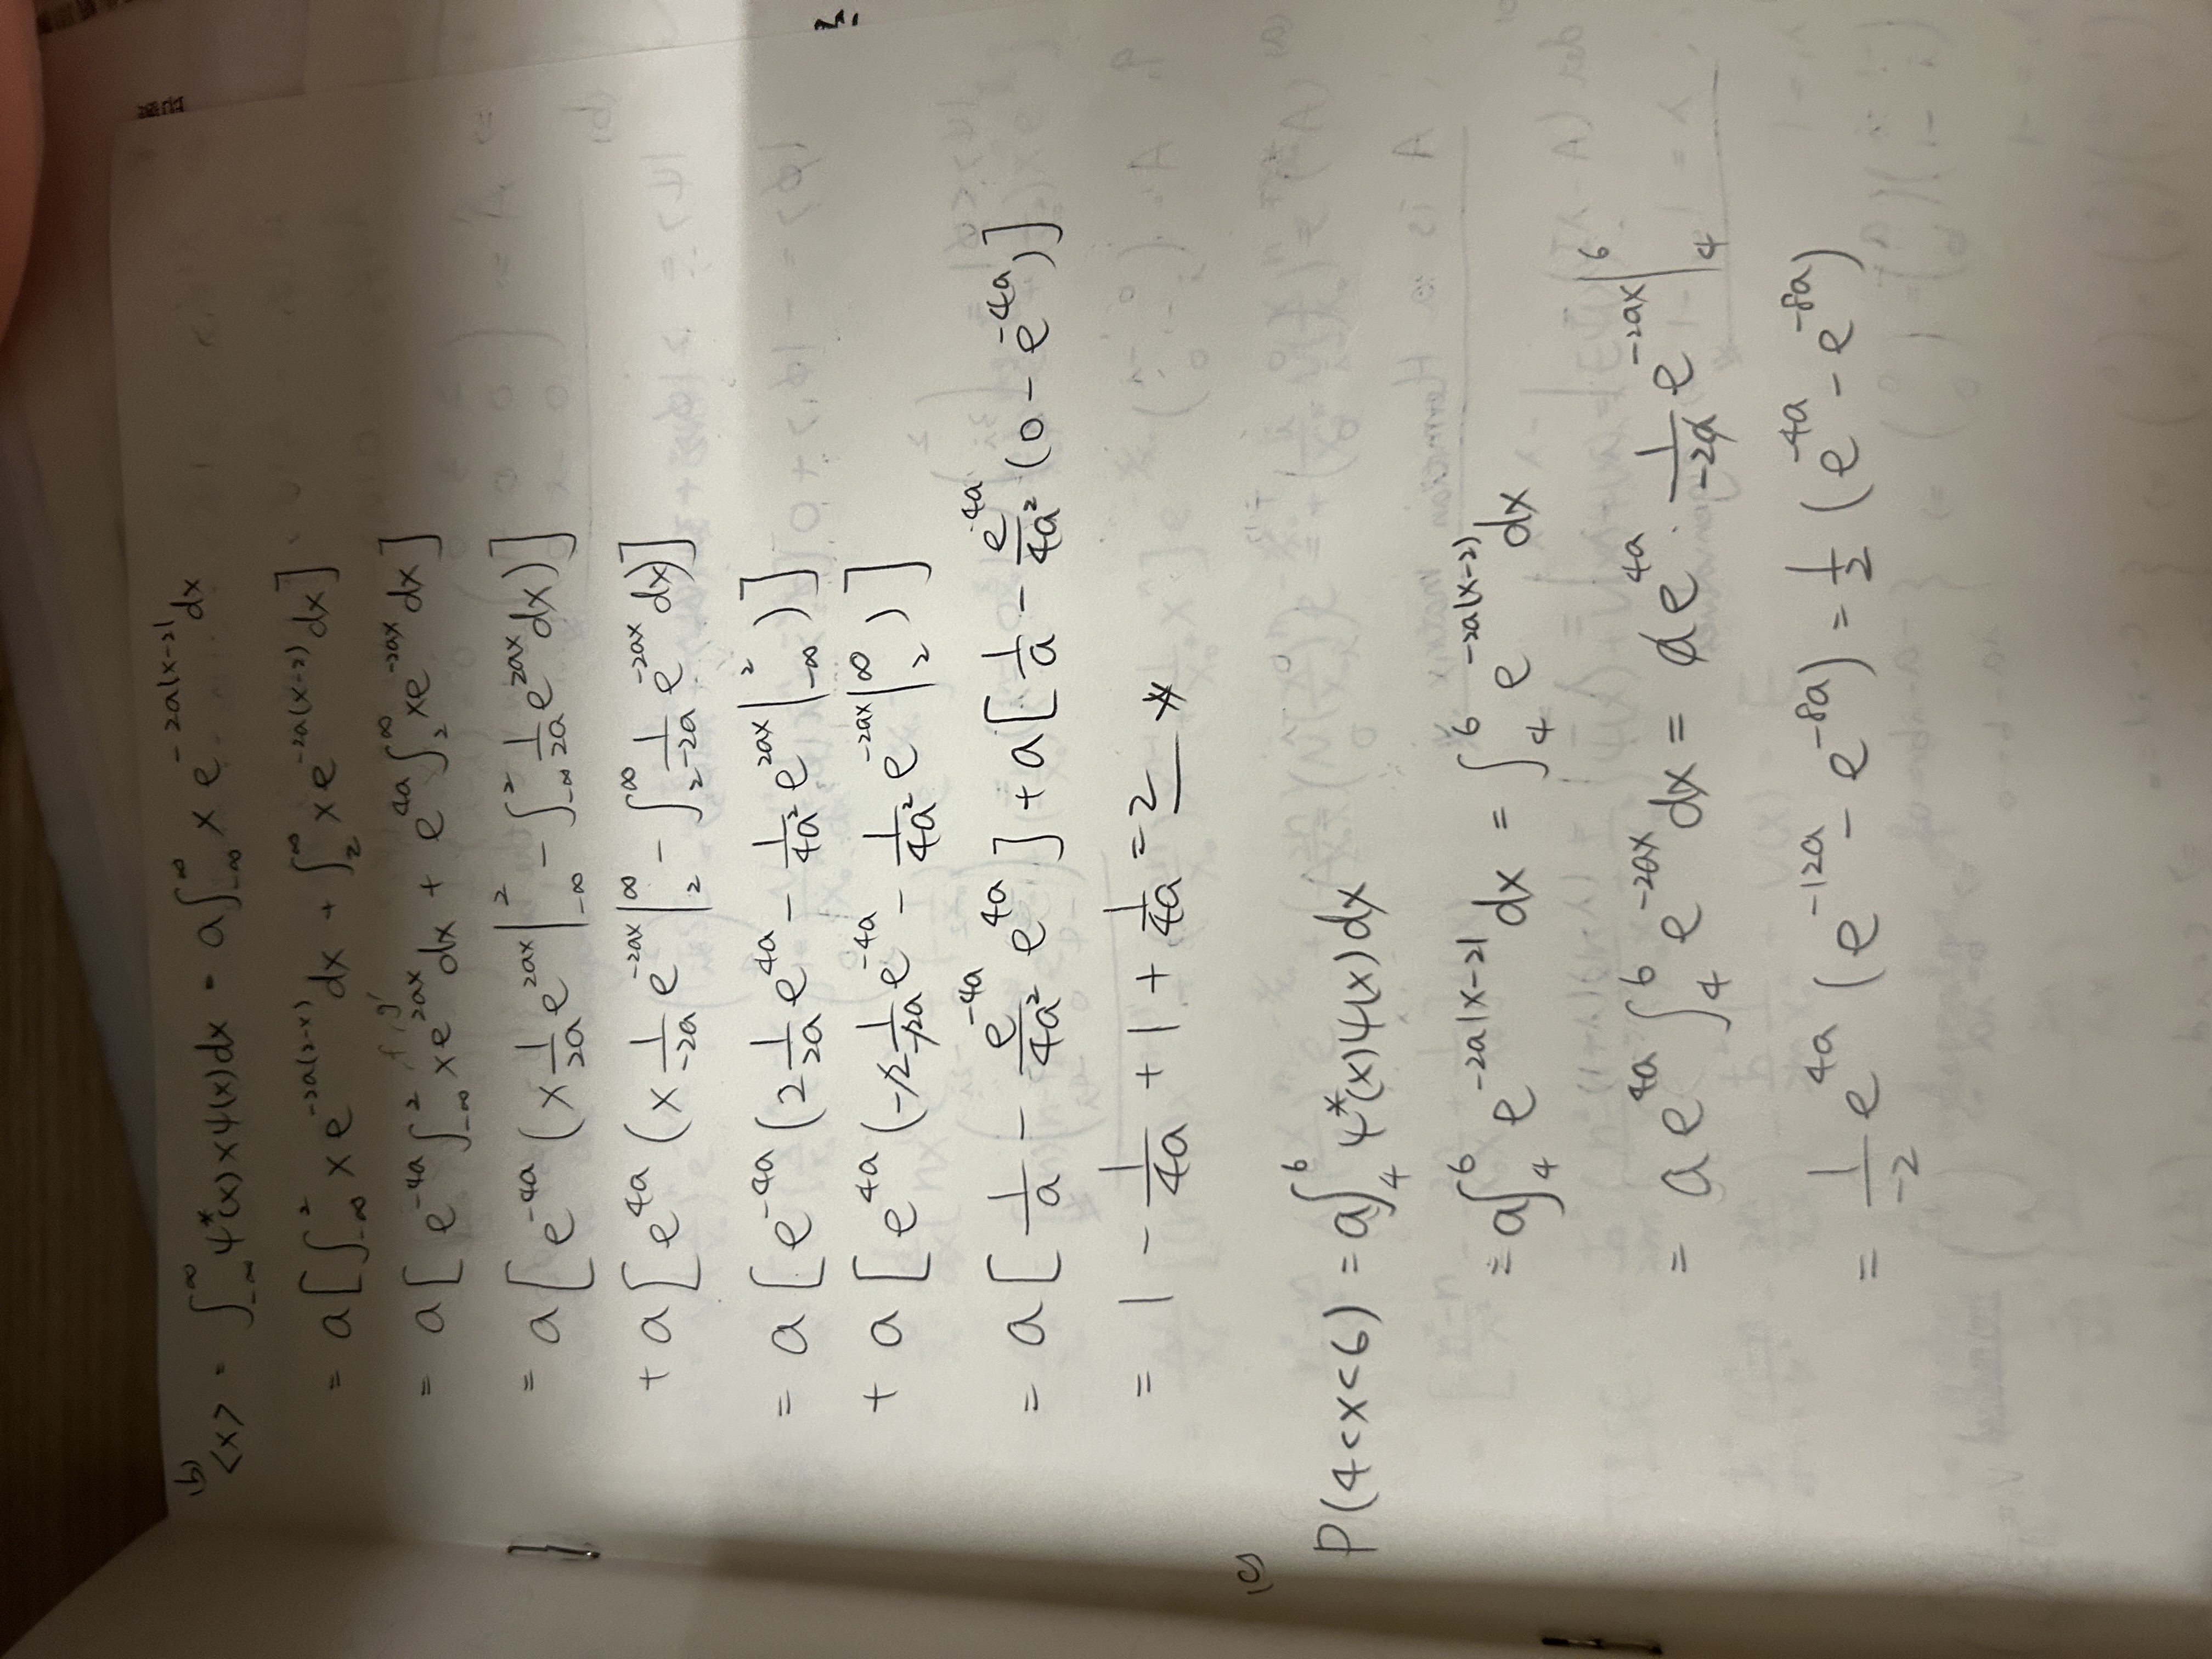 (b)
<x> = ∫_{-∞}^{∞} ψ*(x) x ψ(x) dx = a ∫_{-∞}^{∞} x e^{-2a|x-2|} dx
= a [ ∫_{-∞}^{2} x e^{-2a(2-x)} dx + ∫_{2}^{∞} x e^{-2a(x-2)} dx ]
f, g'
= a [ e^{-4a} ∫_{-∞}^{2} x e^{2ax} dx + e^{4a} ∫_{2}^{∞} x e^{-2ax} dx ]
= a [ e^{-4a} ( x \frac{1}{2a} e^{2ax} |_{-∞}^{2} - ∫_{-∞}^{2} \frac{1}{2a} e^{2ax} dx ) ]
+ a [ e^{4a} ( x \frac{1}{-2a} e^{-2ax} |_{2}^{∞} - ∫_{2}^{∞} \frac{1}{-2a} e^{-2ax} dx ) ]
= a [ e^{-4a} ( 2 \frac{1}{2a} e^{4a} - \frac{1}{4a^2} e^{2ax} |_{-∞}^{2} ) ]
+ a [ e^{4a} ( -2 \frac{1}{-2a} e^{-4a} - \frac{1}{4a^2} e^{-2ax} |_{2}^{∞} ) ]
= a [ \frac{1}{a} - \frac{e^{-4a}}{4a^2} e^{4a} ] + a [ \frac{1}{a} - \frac{e^{4a}}{4a^2} (0 - e^{-4a}) ]
= 1 - \frac{1}{4a} + 1 + \frac{1}{4a} = 2
(c)
P(4<x<6) = a ∫_{4}^{6} ψ*(x) ψ(x) dx
= a ∫_{4}^{6} e^{-2a|x-2|} dx = ∫_{4}^{6} e^{-2a(x-2)} dx
= a e^{4a} ∫_{4}^{6} e^{-2ax} dx = a e^{4a} · \frac{1}{-2a} e^{-2ax} |_{4}^{6}
= \frac{1}{-2} e^{4a} ( e^{-12a} - e^{-8a} ) = \frac{1}{2} ( e^{-4a} - e^{-8a} )